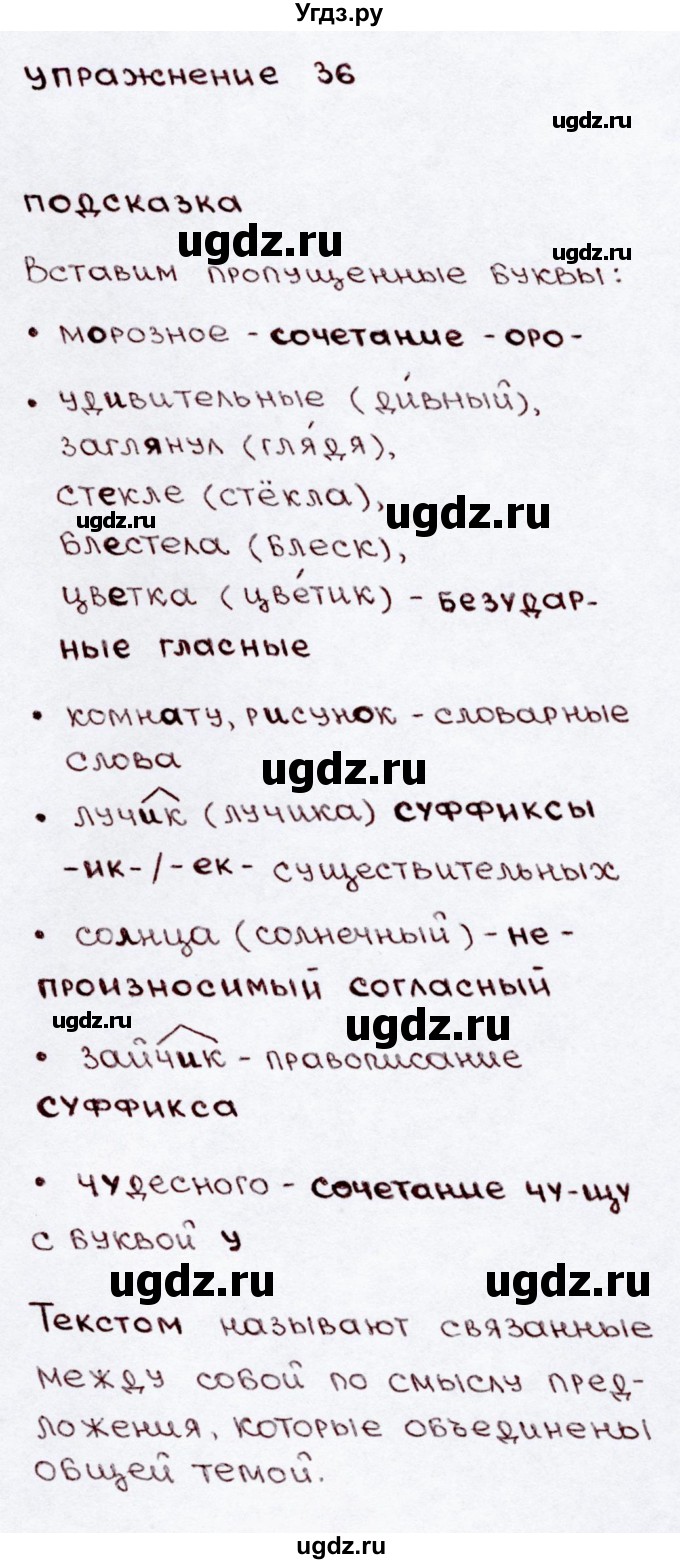 Угдз.ру
упражнение 36
ugdz.ru
подсказка
ugdz.ru
ugdz.ru
Вставим пропущенные буквы:
• морозное - сочетание -оро-
• удивительные (ди́вный),
заглянул (гля́дя),
стекле (стёкла),
ugdz.ru
ugdz.ru
блестела (блеск),
цветка (цве́тик) - безудар-
ные гласные
• комнату, рисунок - словарные
слова
ugdz.ru
• лучик (лучика) суффиксы
-ик-/-ек- существительных
• солнца (солнечный) - не-
произносимый согласный
ugdz.ru
ugdz.ru
• зайчик - правописание
суффикса
• чудесного - сочетание чу-щу
с буквой у
ugdz.ru
ugdz.ru
Текстом называют связанные
между собой по смыслу пред-
ложения, которые объединены
общей темой.
ugdz.ru